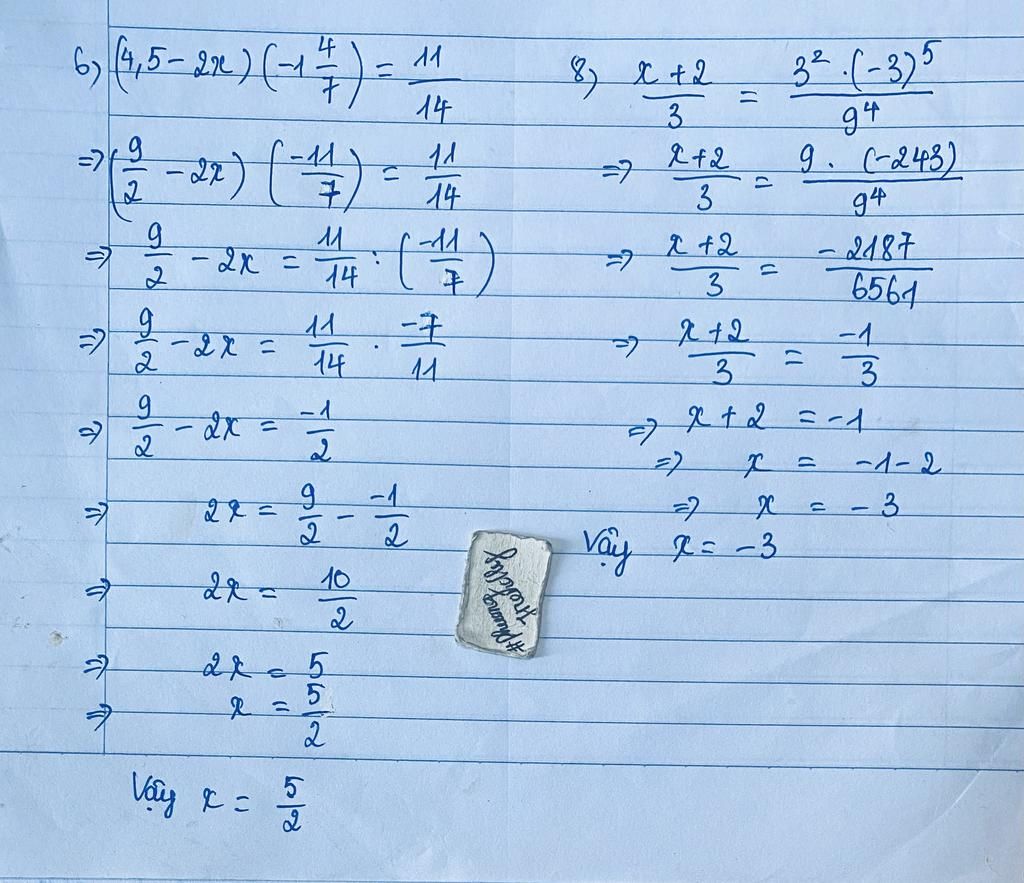 6) (4,5 - 2x) (-1 4/7) = 11/14
=> (9/2 - 2x) (-11/7) = 11/14
=> 9/2 - 2x = 11/14 : (-11/7)
=> 9/2 - 2x = 11/14 . -7/11
=> 9/2 - 2x = -1/2
=> 2x = 9/2 - -1/2
=> 2x = 10/2
=> 2x = 5
=> x = 5/2
Vậy x = 5/2
8) x+2/3 = 3² . (-3)⁵/9⁴
=> x+2/3 = 9 . (-243)/9⁴
=> x+2/3 = -2187/6561
=> x+2/3 = -1/3
=> x + 2 = -1
=> x = -1-2
=> x = -3
Vậy x = -3